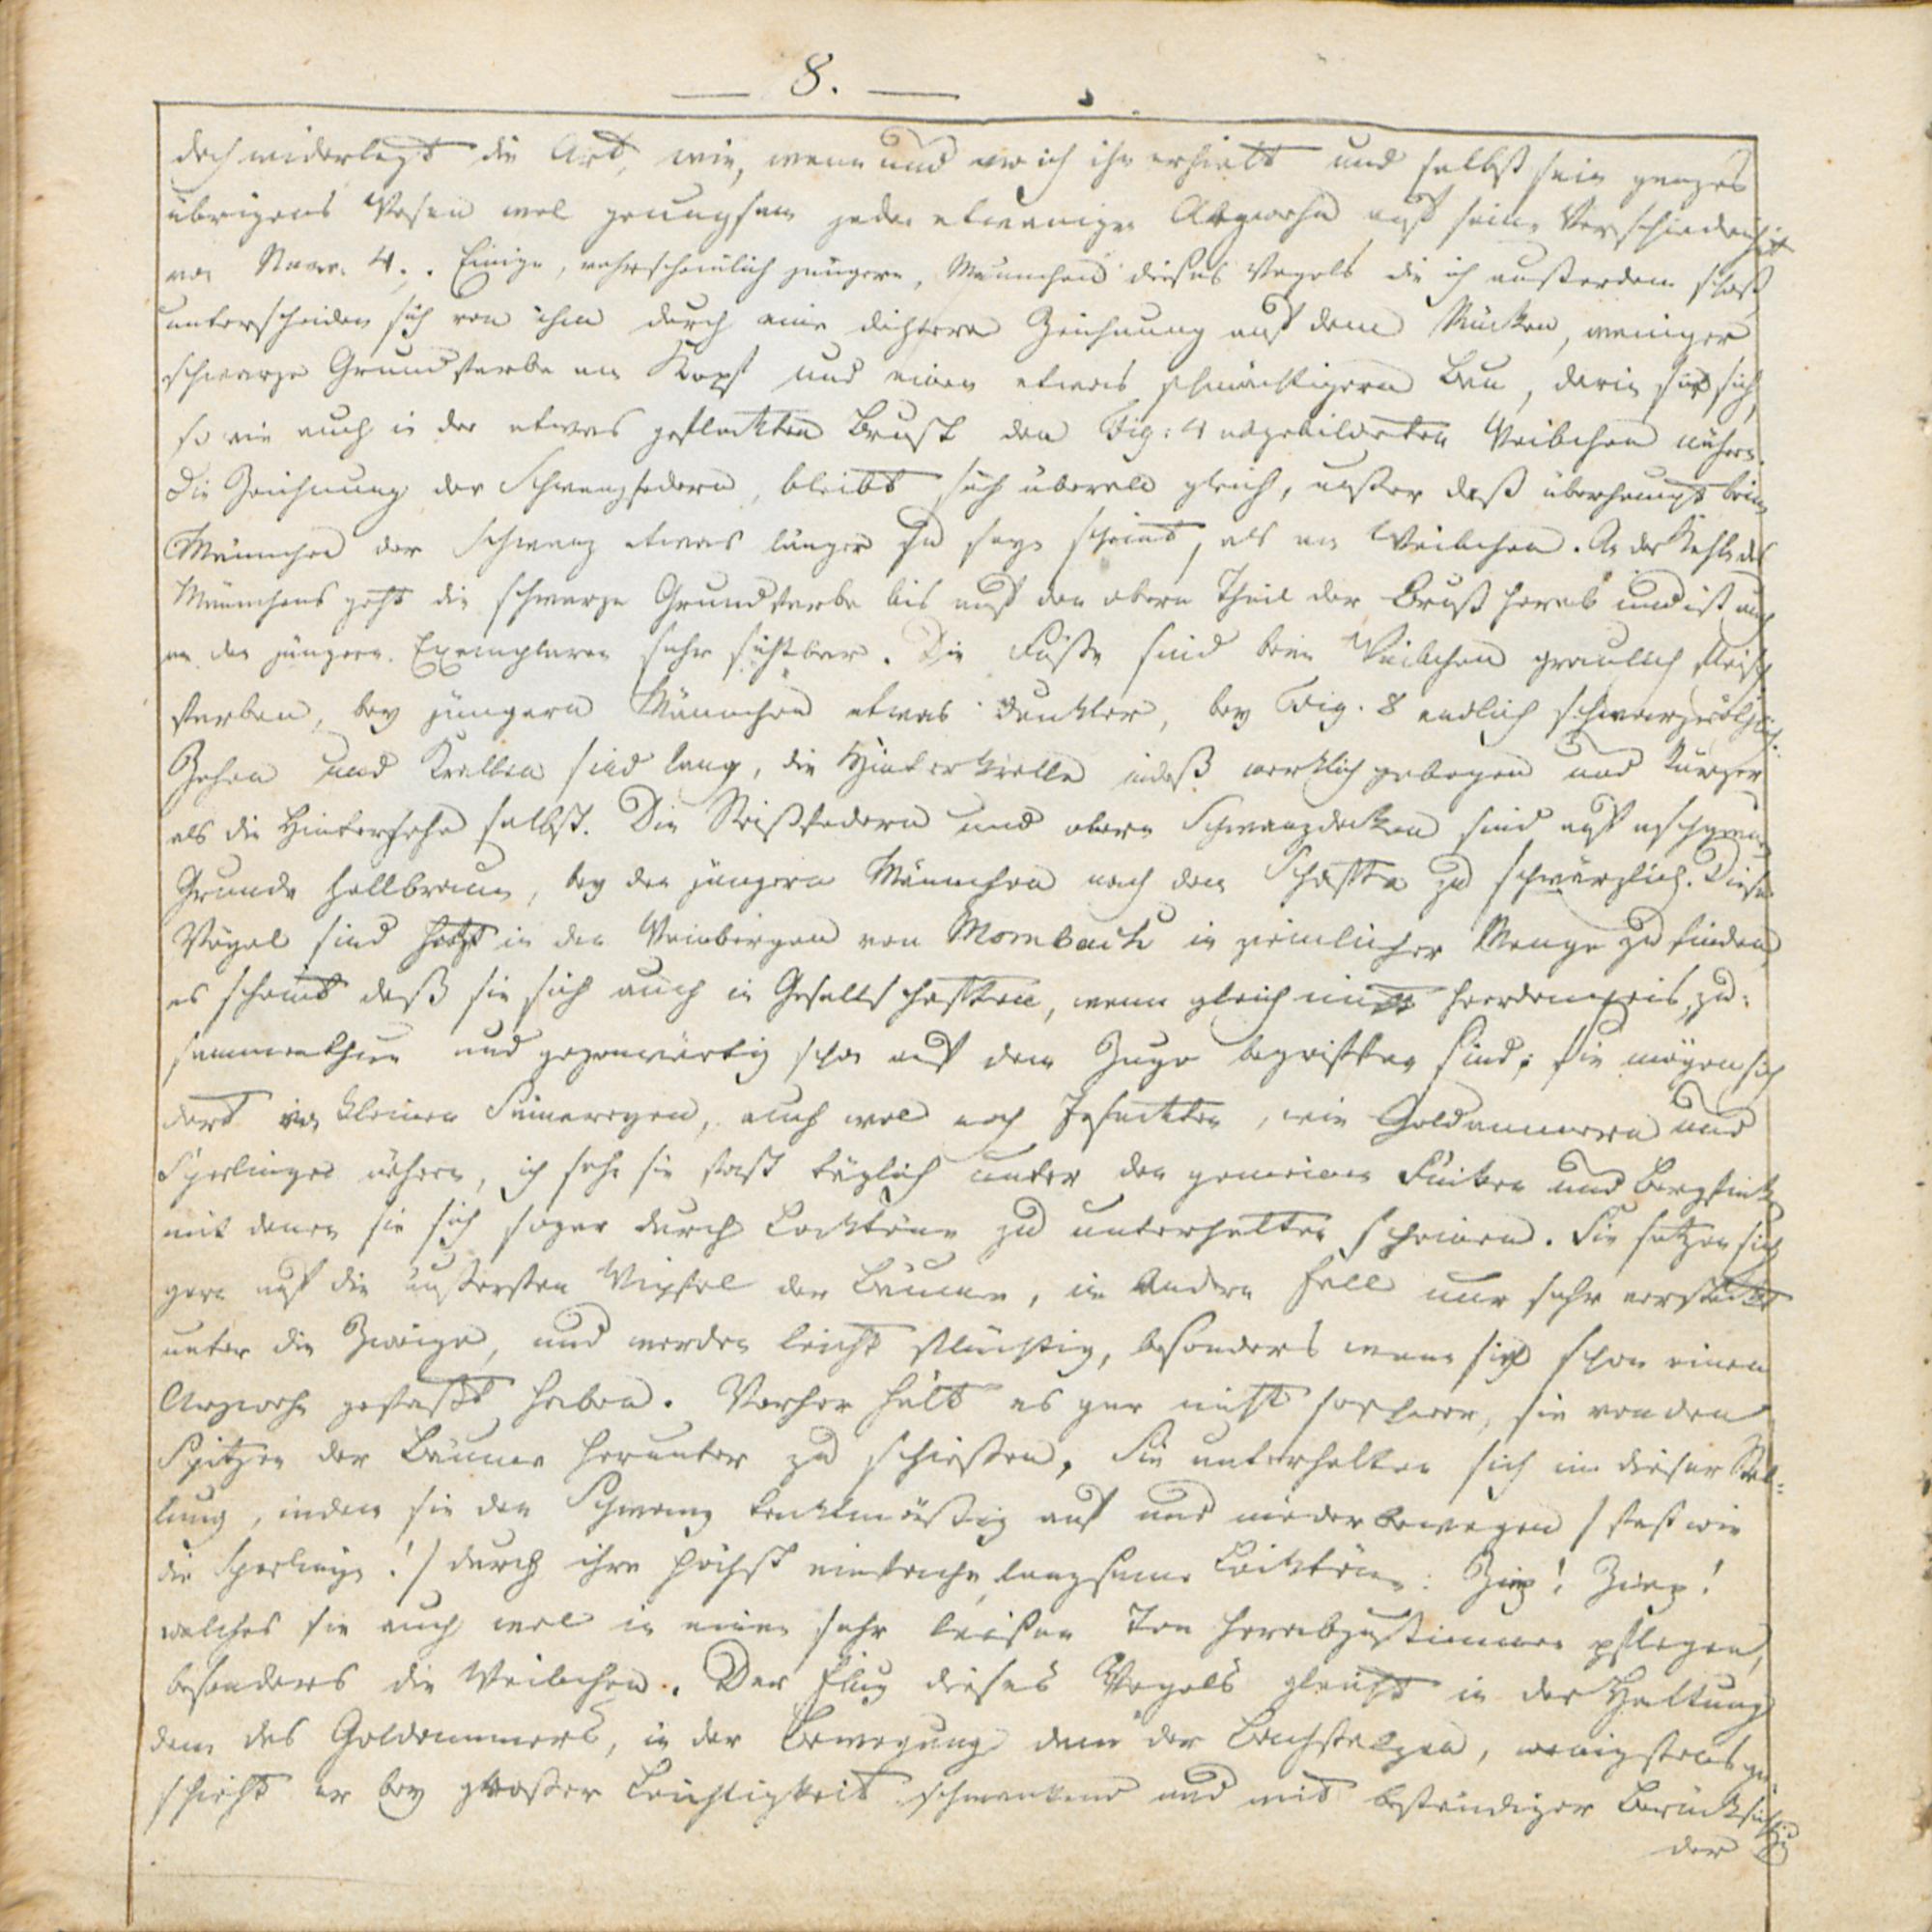 8.
doch widerlegt die Art, wie, wenn und wo ich ihn erhielt und selbst sein ganzes
übriges Wesen wol genugsam jeden etwanigen Argwohn auf seine Verschiedenheit
von Nro. 4. Einige, wahrscheinlich jüngere, Männchen dieses Vogels die ich außerdem schoß
unterscheiden sich von ihm durch eine dichtere Zeichnung auf dem Rücken, weniger
schwarze Grundfarbe am Kopf und einen etwas schmächtigern Bau, darin sie sich,
so wie auch in der etwas gefleckten Brust dem Fig: 4 abgebildeten Weibchen nähern.
Die Zeichnung der Schwanzfedern, bleibt sich überall gleich, außer daß überhaupt beim
Männchen der Schwanz etwas länger zu seyn scheint, als am Weibchen. An der Kehle des
Männchens geht die schwarze Grundfarbe bis auf den obern Theil der Brust herab und ist auch
an den jüngern Exemplaren sehr sichtbar. Die Füße sind beim Weibchen graulich fleisch
farben, bey jüngern Männchen etwas dunkler, bey Fig. 8 endlich
Zehen und Krallen sind lang, die Hinterkralle indeß merklich gebogen und kürzer
als die Hinterzehe selbst. Die Steißfedern und obern Schwanzdecken sind auf aschgrauem
Grunde hellbraun, bey den jüngern Männchen nach dem Schafte zu schwärzlich. Diese
Vögel sind jetzt in den Weinbergen von Mombach in ziemlicher Menge zu finden,
es scheint daß sie sich auch in Gesellschaften, wenn gleich nicht heerdenweis, zu-
sammenthun und gegenwärtig schon auf dem Zuge begriffen sind; sie mögen sich
dort von kleinen Sämereyen, auch wol noch Insekten, wie Goldammern und
Sperlinge nähren, ich sehe sie fast täglich unter den gemeinen Finken und Bergfinken
mit denen sie sich sogar durch Locktöne zu unterhalten scheinen. Sie setzen sich
gern auf die äußersten Wipfel der Bäume, im andern Fall nur sehr versteckt
unter die Zweige, und werden leicht flüchtig, besonders wenn sie schon einen
Argwohn gefaßt haben. Vorher hält es gar nicht so schwer, sie von den
Spitzen der Bäume herunter zu schießen. Sie unterhalten sich in dieser Stel-
lung, indem sie den Schwanz taktmäßig auf und nieder bewegen / fast wie
die Sperlinge! / durch ihre höchst einfache, langsame Locktöne: Ziep! Ziep!
welches sie auch wol in einen sehr leisen Ton herabzustimmen pflegen,
besonders die Weibchen. Der Flug dieses Vogels gleicht in der Haltung
dem des Goldammers, in der Bewegung dem der Bachstelzen, wenigstens ge-
schieht er bey großer Leichtigkeit schwankend und mit beständiger
der